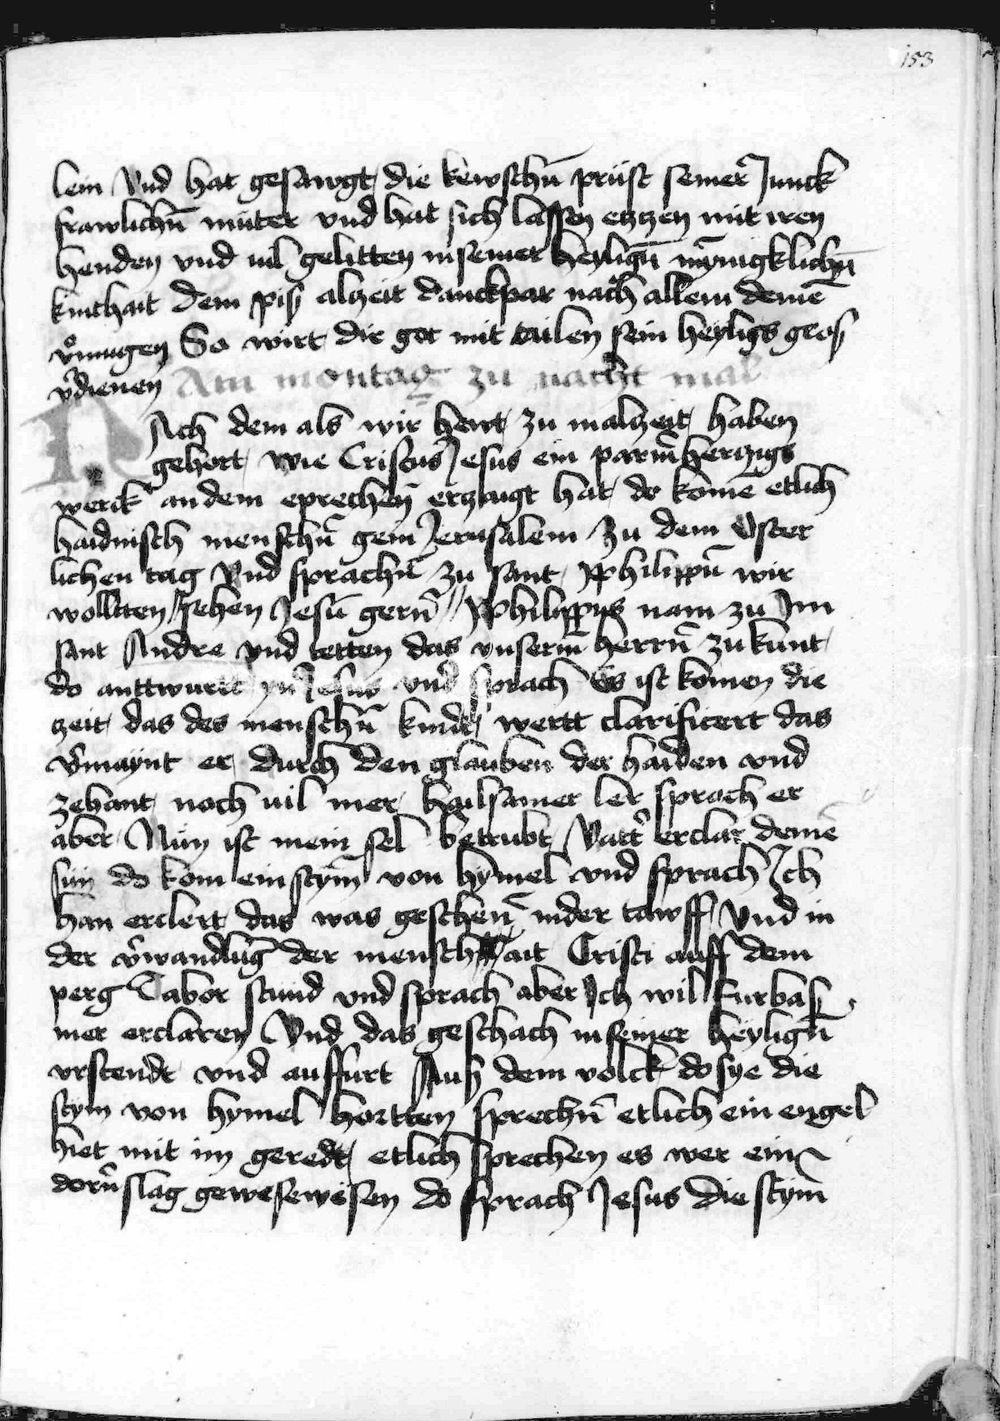 153
lein Vnd hat gesawgt die kewschñ prüst seiner Junck
frawlichñ müter vnd hat sich lassen eczzen mit iren
henden vnd uil gelitten in seiner heyligñ mynigklichñ
kinthait dem piß alzeit danckpar nach allem deinē
v̉mugen So wirt dir got mit tailen sein heyligs gros
v̉dienen Am montag zu nacht mal
NAch dem als wir hewt zu malzeit haben
gehort wie Cristus Jesus ein parm̄herczigs
werck an dem eprechen̄ erzaigt hat do komē etlich
haidnisch menschñ gein Jerusalem zu dem Oster
lichen tag Vnd sprachñ zu sant Philippñ wir
wollten sehen Jesū gern̄ Philippus nam zu Im
sant Andre vnd tetten das vnserm̄ herrn̄ zu kunt
do anttwurtt yn Jesus vnd̉ sprach Es ist komen die
zeit das des menschñ kindt wertt clarificert das
v̉maynt er durch den glauben der haiden vnd
zehant noch uil mer hailsamer ler sprach er
aber Nün ist mein sel betrubt Vatt̉ erclar deinē
sün do kom ein stym̄ von hymel vnd sprach Ich
han erclert das was geschen̄ in der tawff Vnd in
der v̉wandlūg der menschhait Cristi auff dem
perg Tabor stund vnd sprach aber Ich wil furbaß
mer erclaren Vnd das geschach in seiner heyligñ
vrstendt vnd auffurt Auß dem volck do sye die
stym von hymel hortten sprechñ etlich ein engel
hiet mit im geredt etlich sprechen es wer ein
dorn̉slag gewesewesen do sprach Jesus die stym̄